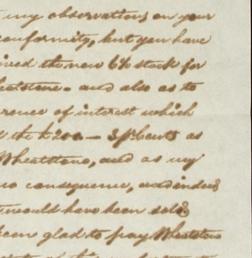 my observations, on your
conformity, but you have
the new 6% stock for
Wheatstone. and also as to
of interest which
the £200 — 3 pCents as
Wheatstone, and as my
no consequence, and indeed
would have been sold
been glad to pay Wheatstone